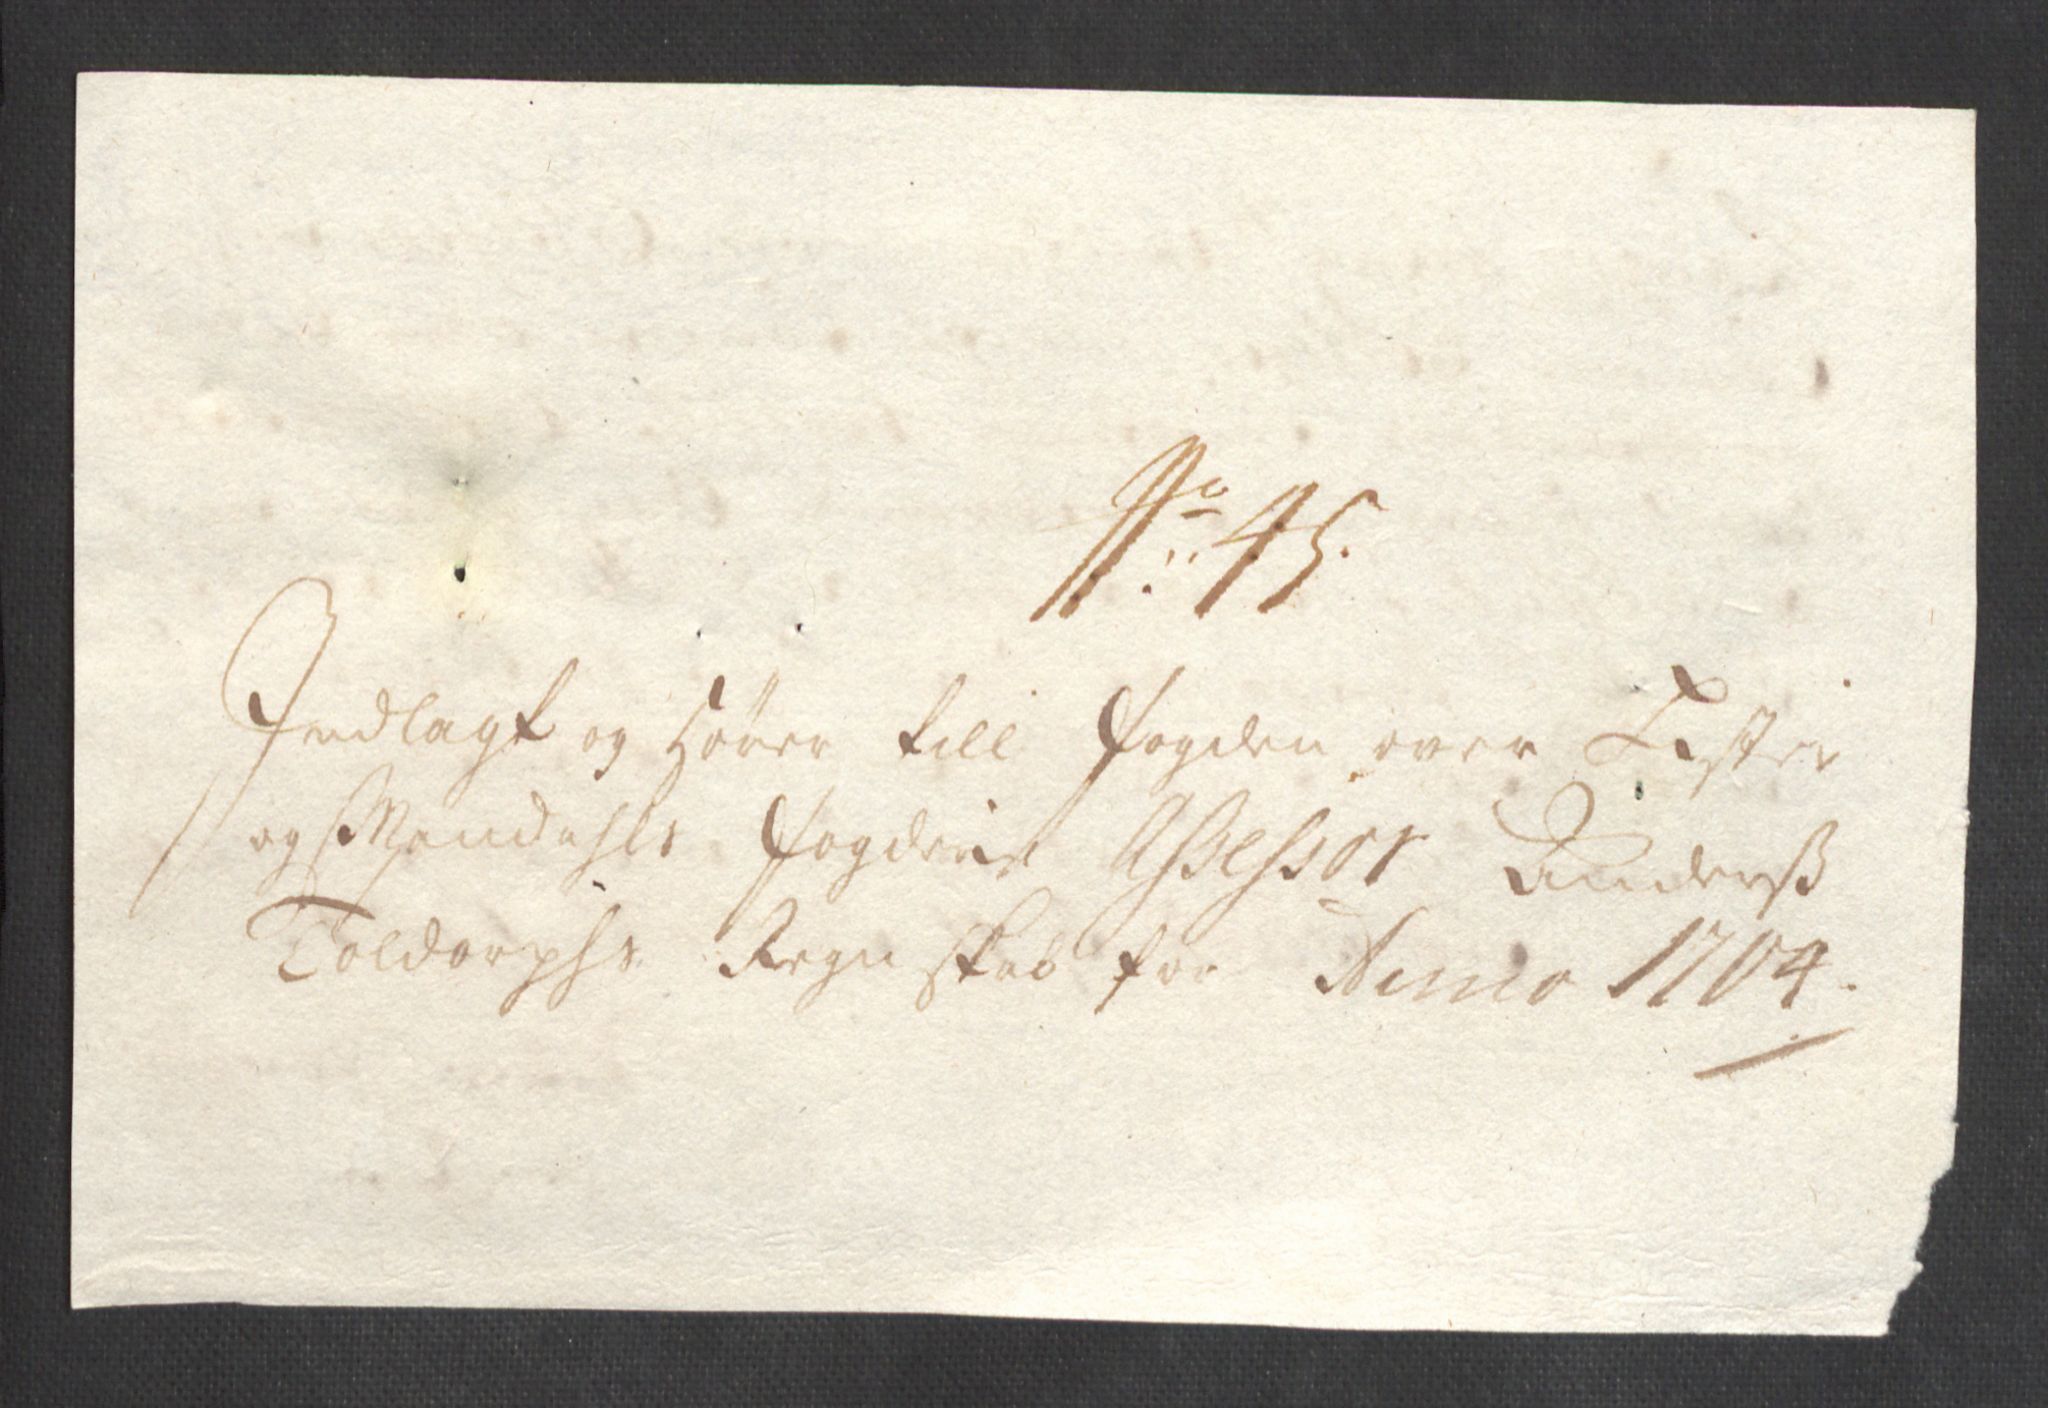 No: 45.
Indlagt og hörer till fogden over Lister
og Mandahls fogderie Assessor Anderss
Toldorphs Regnskab for Anno 1704.